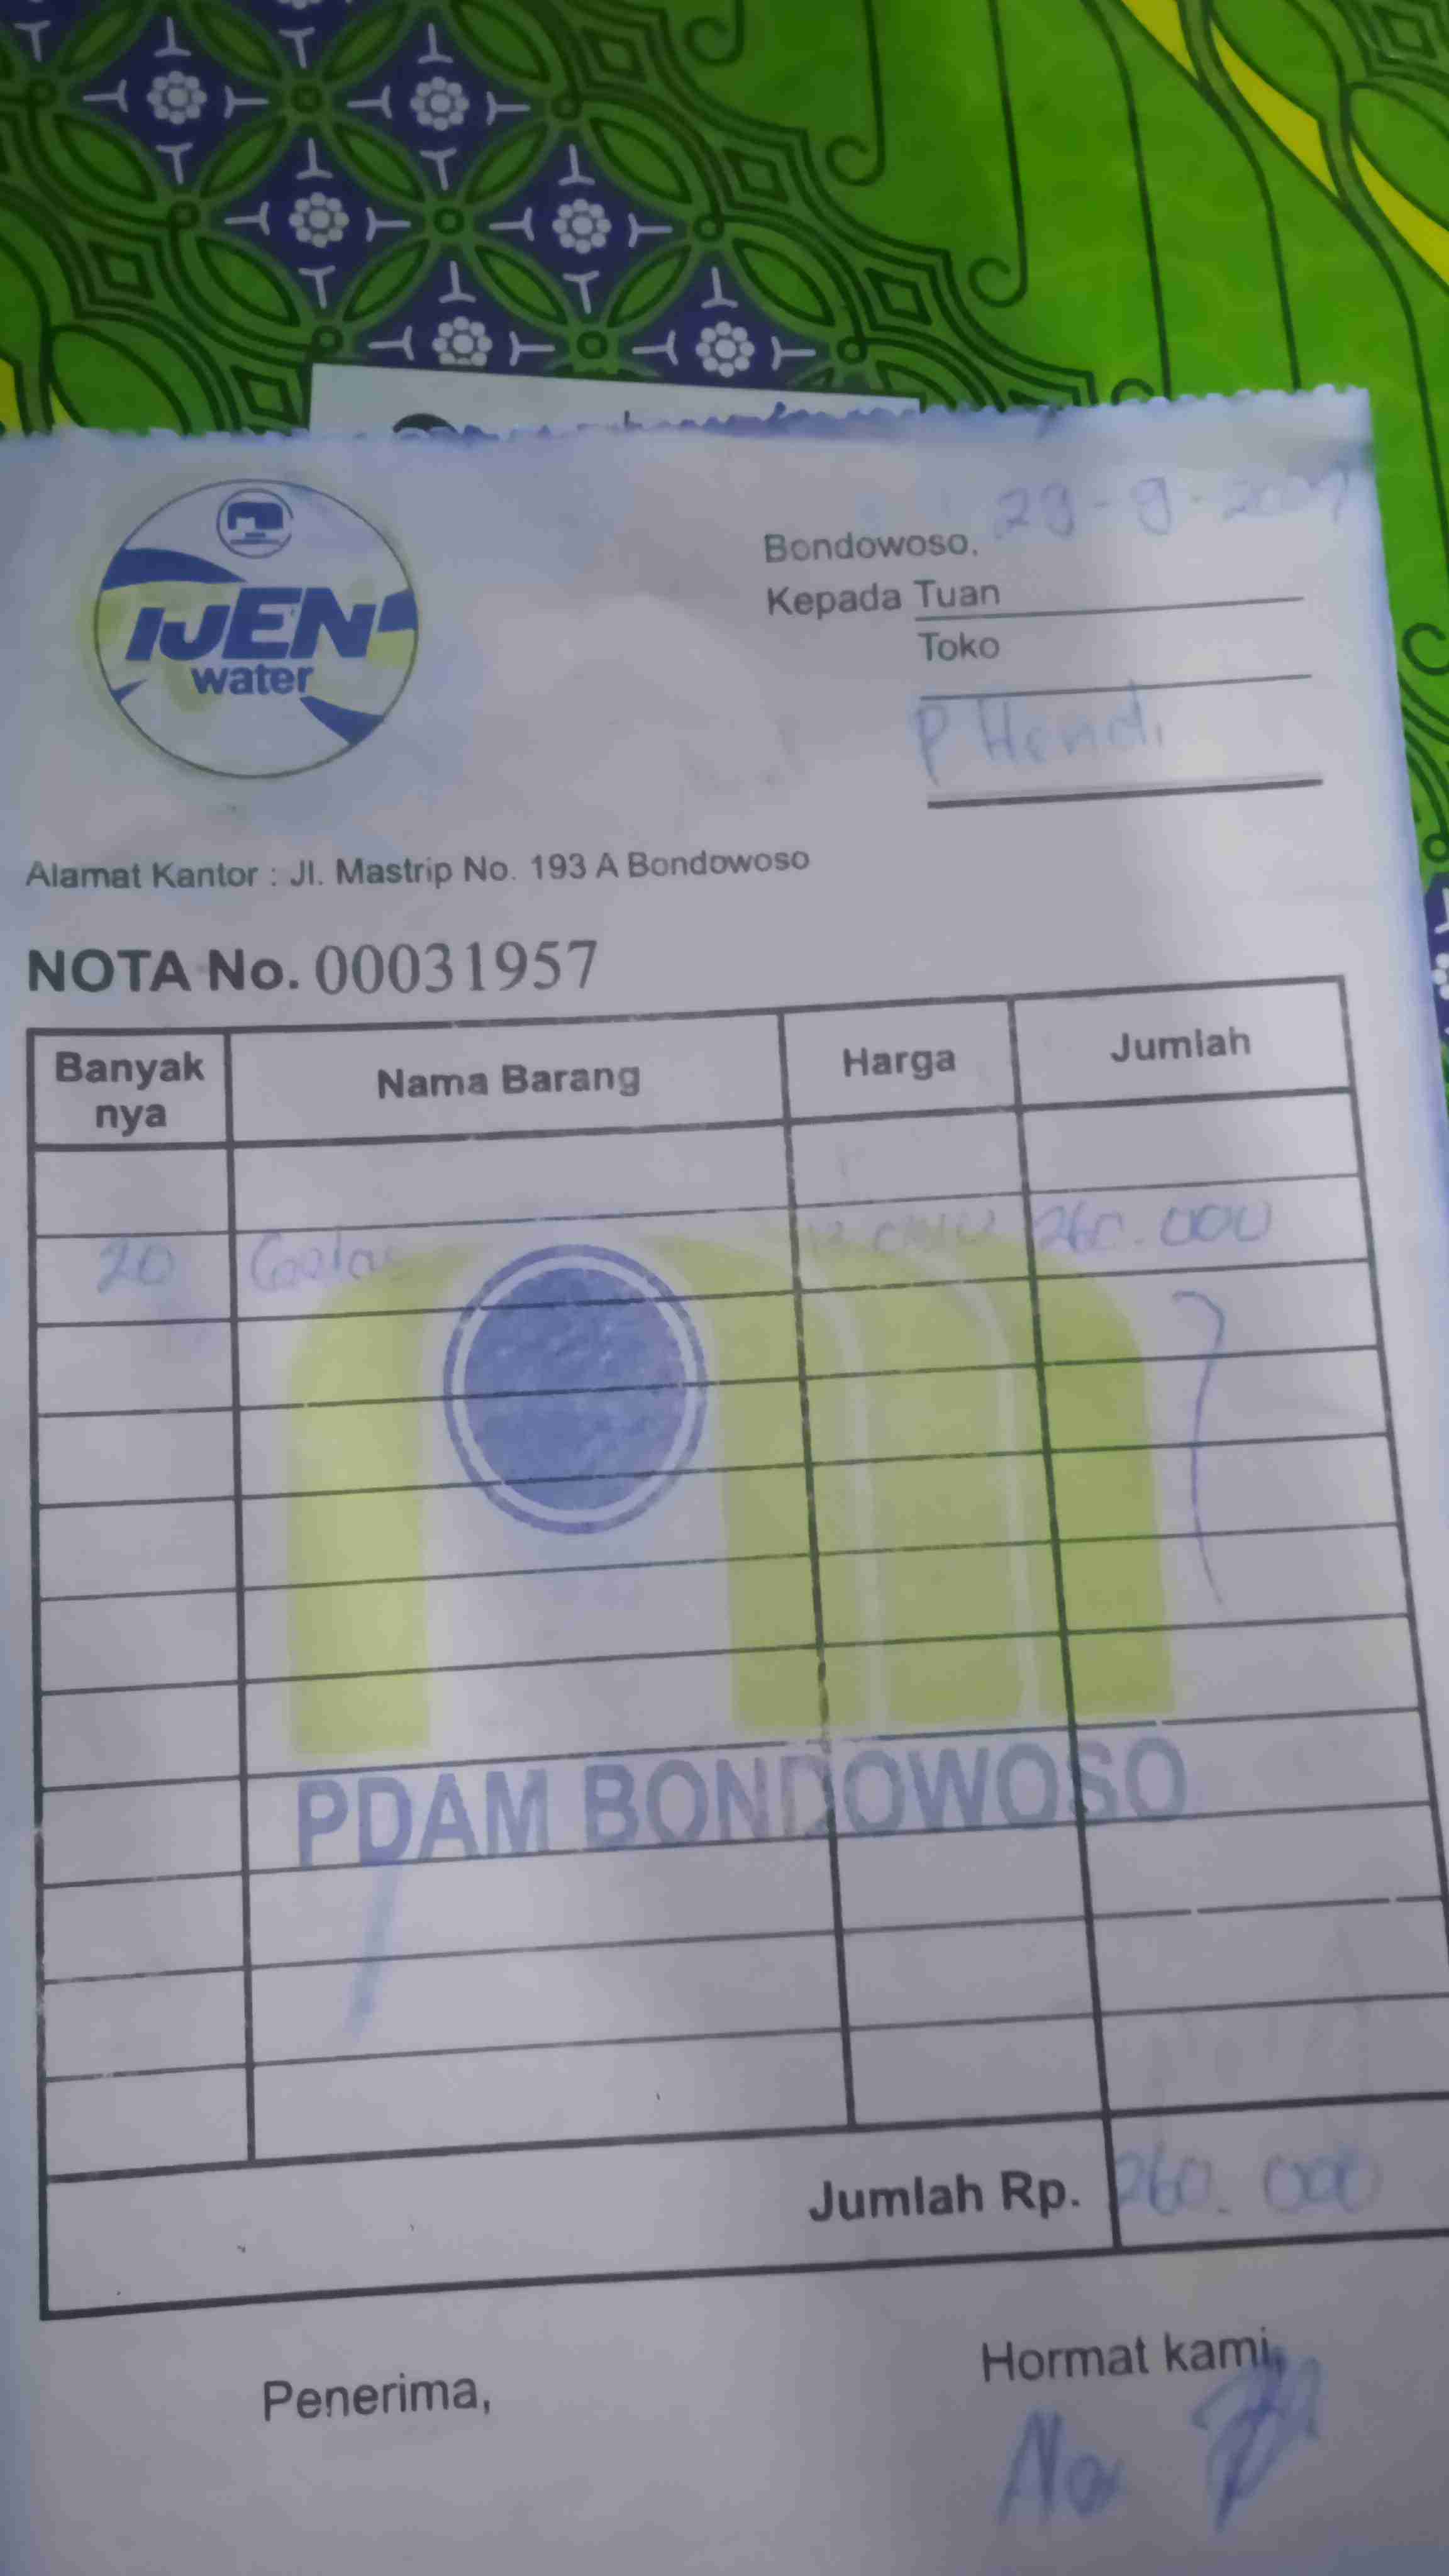 IJEN
water
Bondowoso, 29-9-
Kepada Tuan
Toko
P Hendi
Alamat Kantor : Jl. Mastrip No. 193 A Bondowoso
NOTA No. 00031957
Banyak nya Nama Barang Harga Jumlah
20 260.000
PDAM BONDOWOSO
Jumlah Rp. 260.000
Penerima, Hormat kami,